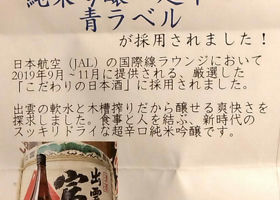 純米吟醸
青ラベル
が採用されました!
日本航空(JAL)の国際線ラウンジにおいて
2019年9月~11月に提供される、厳選した
「こだわりの日本酒」に採用されました。
出雲の軟水と木槽搾りだから醸せる爽快さを
探求しました。食事と人を結ぶ、新時代の
スッキリドライな超辛口純米吟醸です。
出雲